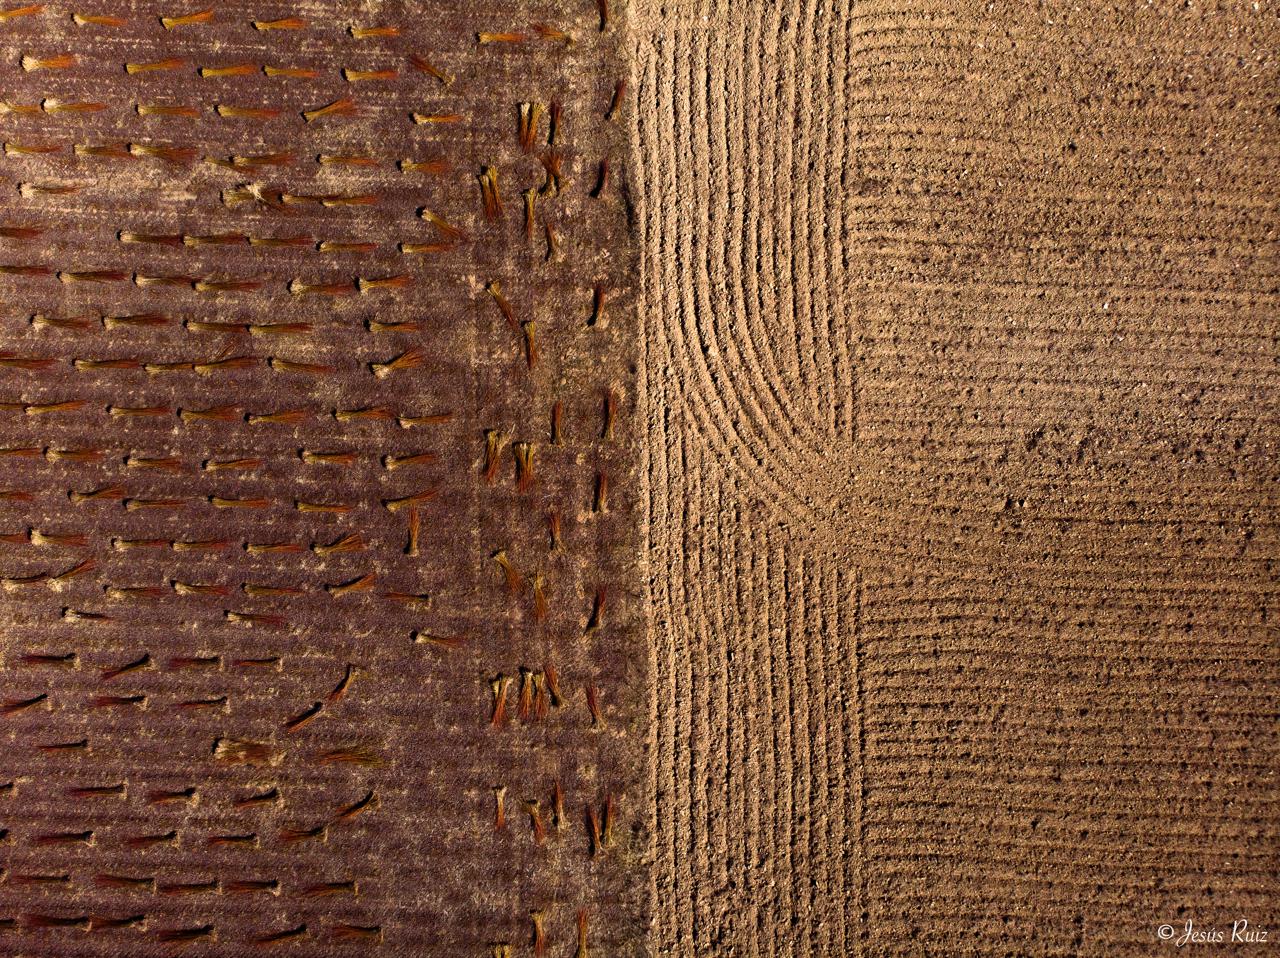 © Jesús Ruiz